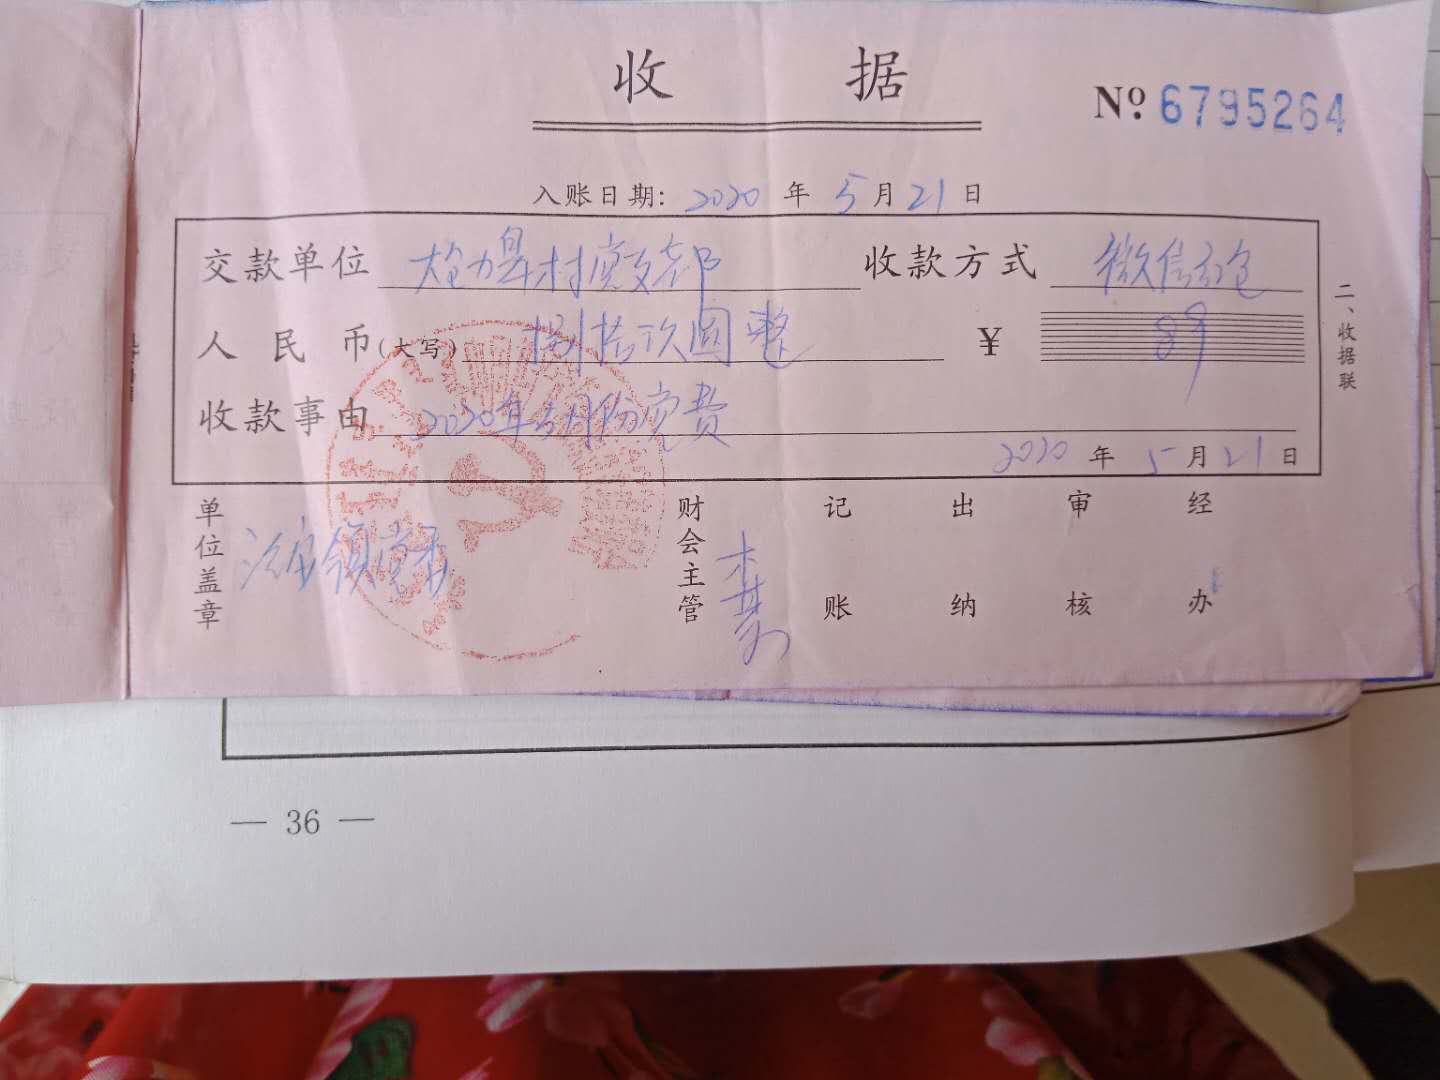 收 据
№ 6795264
入账日期: 2020 年 5 月 21 日
交款单位 村党支部 收款方式 微信红包
人民币(大写) 捌拾玖圆整 ¥ 89
收款事由 2020年5月份党费
2020 年 5 月 21 日
二、收据联
单位盖章 财会主管 记账 出纳 审核 经办
— 36 —